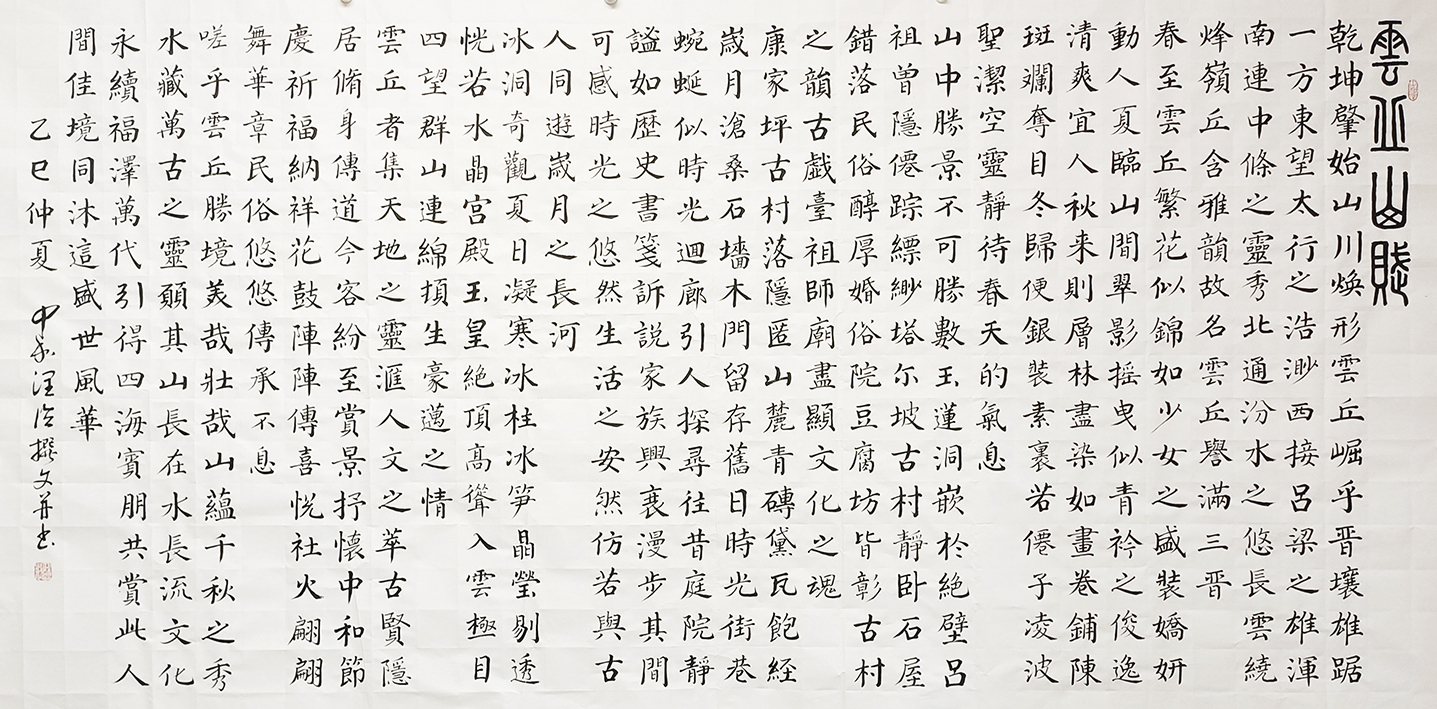 雲丘山賦
乾坤肇始山川煥形雲丘崛乎晋壤雄踞
一方東望太行之浩渺西接呂梁之雄渾
南連中條之靈秀北通汾水之悠長雲繞
烽嶺丘含雅韻故名雲丘譽滿三晋
春至雲丘繁花似錦如少女之盛裝嬌妍
動人夏臨山間翠影摇曳似青衿之俊逸
清爽宜人秋来則層林盡染如畫卷鋪陳
斑斕奪目冬歸便銀裝素裹若僊子凌波
聖潔空靈静待春天的氣息
山中勝景不可勝數玉蓮洞嵌於絶壁呂
祖曽隱僊踪縹緲塔尔坡古村静卧石屋
錯落民俗醇厚婚俗院豆腐坊皆彰古村
之韻古戯臺祖師廟盡顯文化之魂
康家坪古村落隱匿山麓青磚黛瓦飽経
嵗月滄桑石墻木門留存舊日時光街巷
蜿蜒似時光迴廊引人探尋往昔庭院静
謐如歷史書箋訴説家族興衰漫步其間
可感時光之悠然生活之安然仿若與古
人同遊嵗月之長河
冰洞奇觀夏日凝寒冰柱冰笋晶瑩剔透
恍若水晶宫殿玉皇絶頂高聳入雲極目
四望群山連綿頓生豪邁之情
雲丘者集天地之靈滙人文之萃古賢隱
居脩身傳道今客紛至賞景抒懷中和節
慶祈福納祥花鼓陣陣傳喜悦社火翩翩
舞華章民俗悠悠傳承不息
嗟乎雲丘勝境美哉壯哉山蘊千秋之秀
水藏萬古之靈願其山長在水長流文化
永續福澤萬代引得四海賓朋共賞此人
間佳境同沐這盛世風華
乙巳仲夏
撰文并书